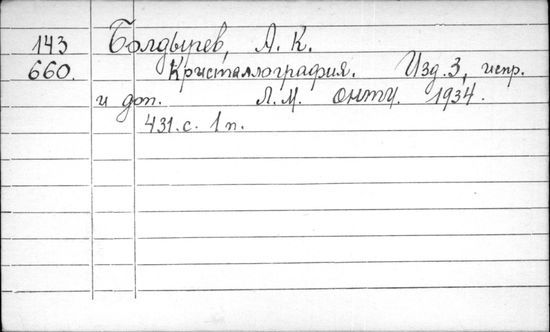 143 Болдырев, А. К.
660. Кристаллография. Изд. 3, испр.
и доп. Л.М. ОНТИ. 1934.
431.с. 1 п.